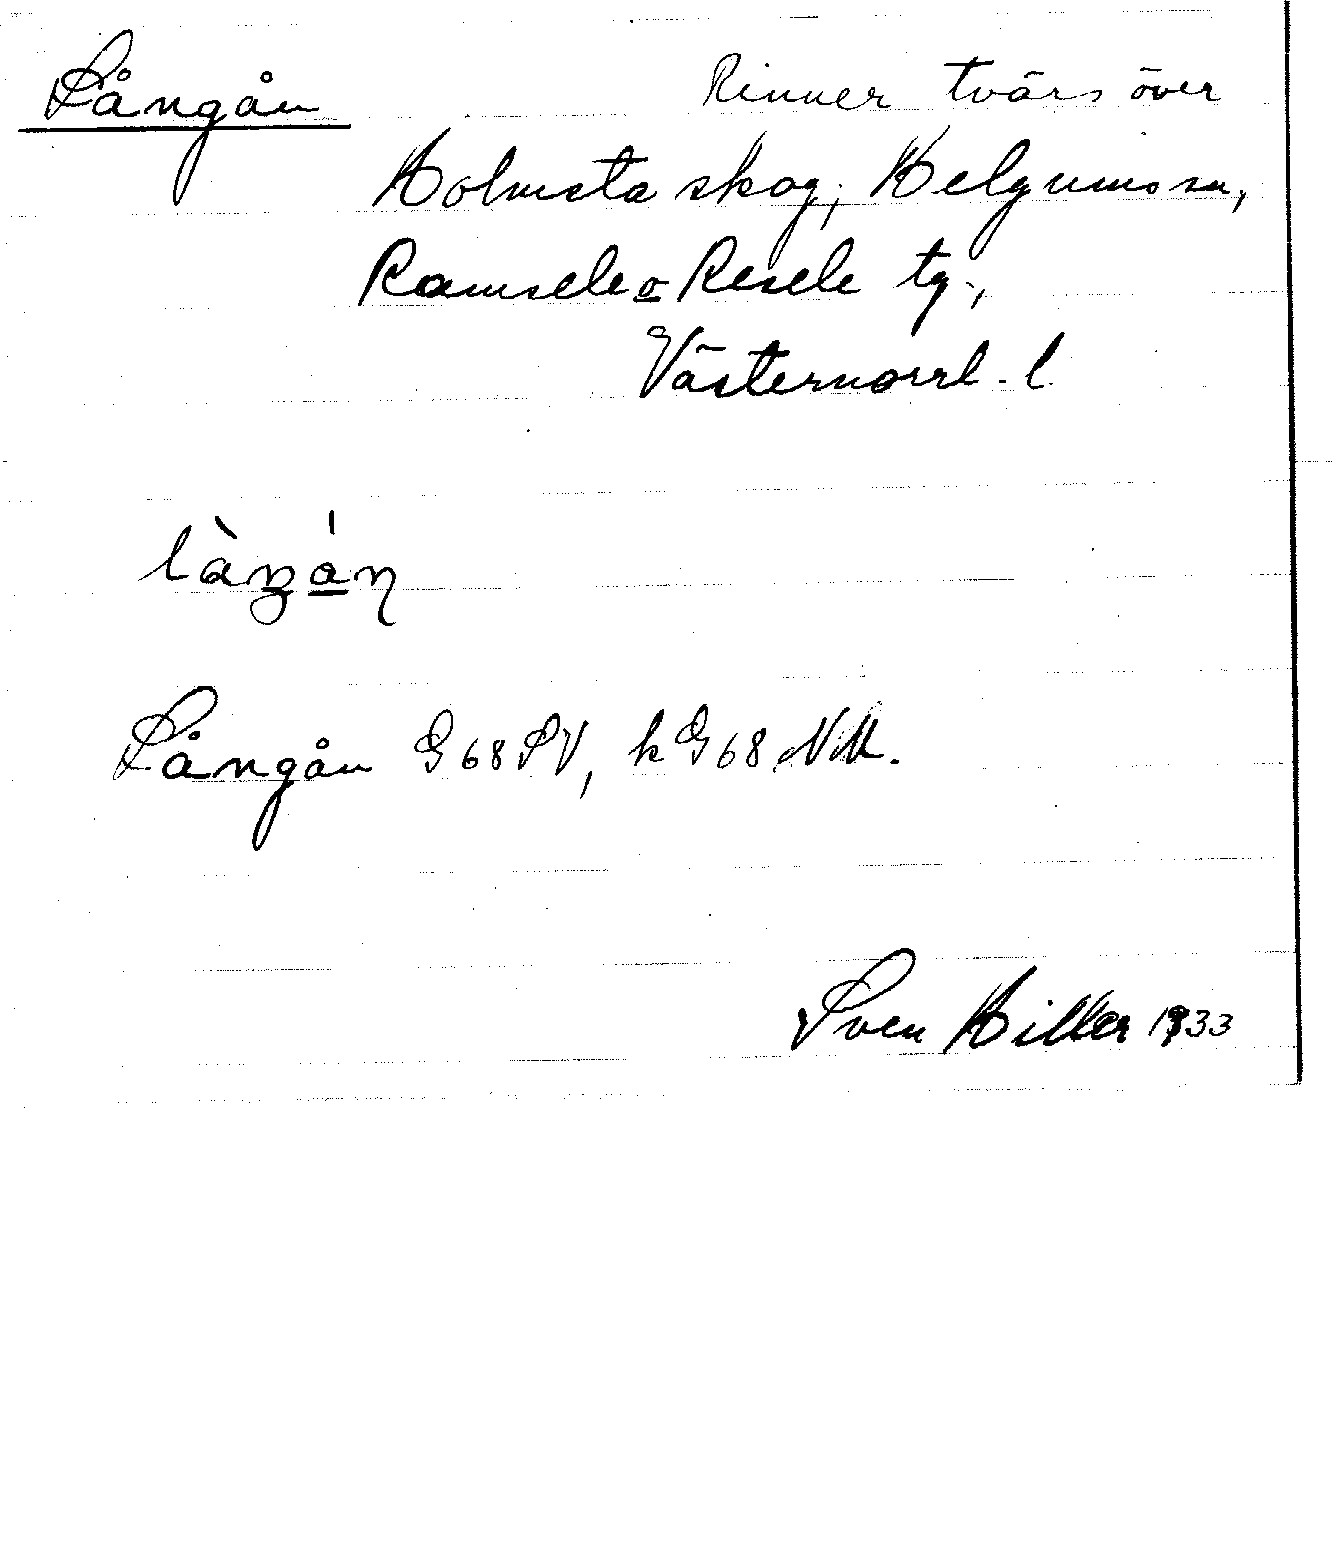 Långån Rinner tvärs över
Holmsta skog, Helgums sn,
Ramsele o Resele tg.,
Västernorrl. l
Långån G68SV, k G68NV.
Sven Hiller 1933